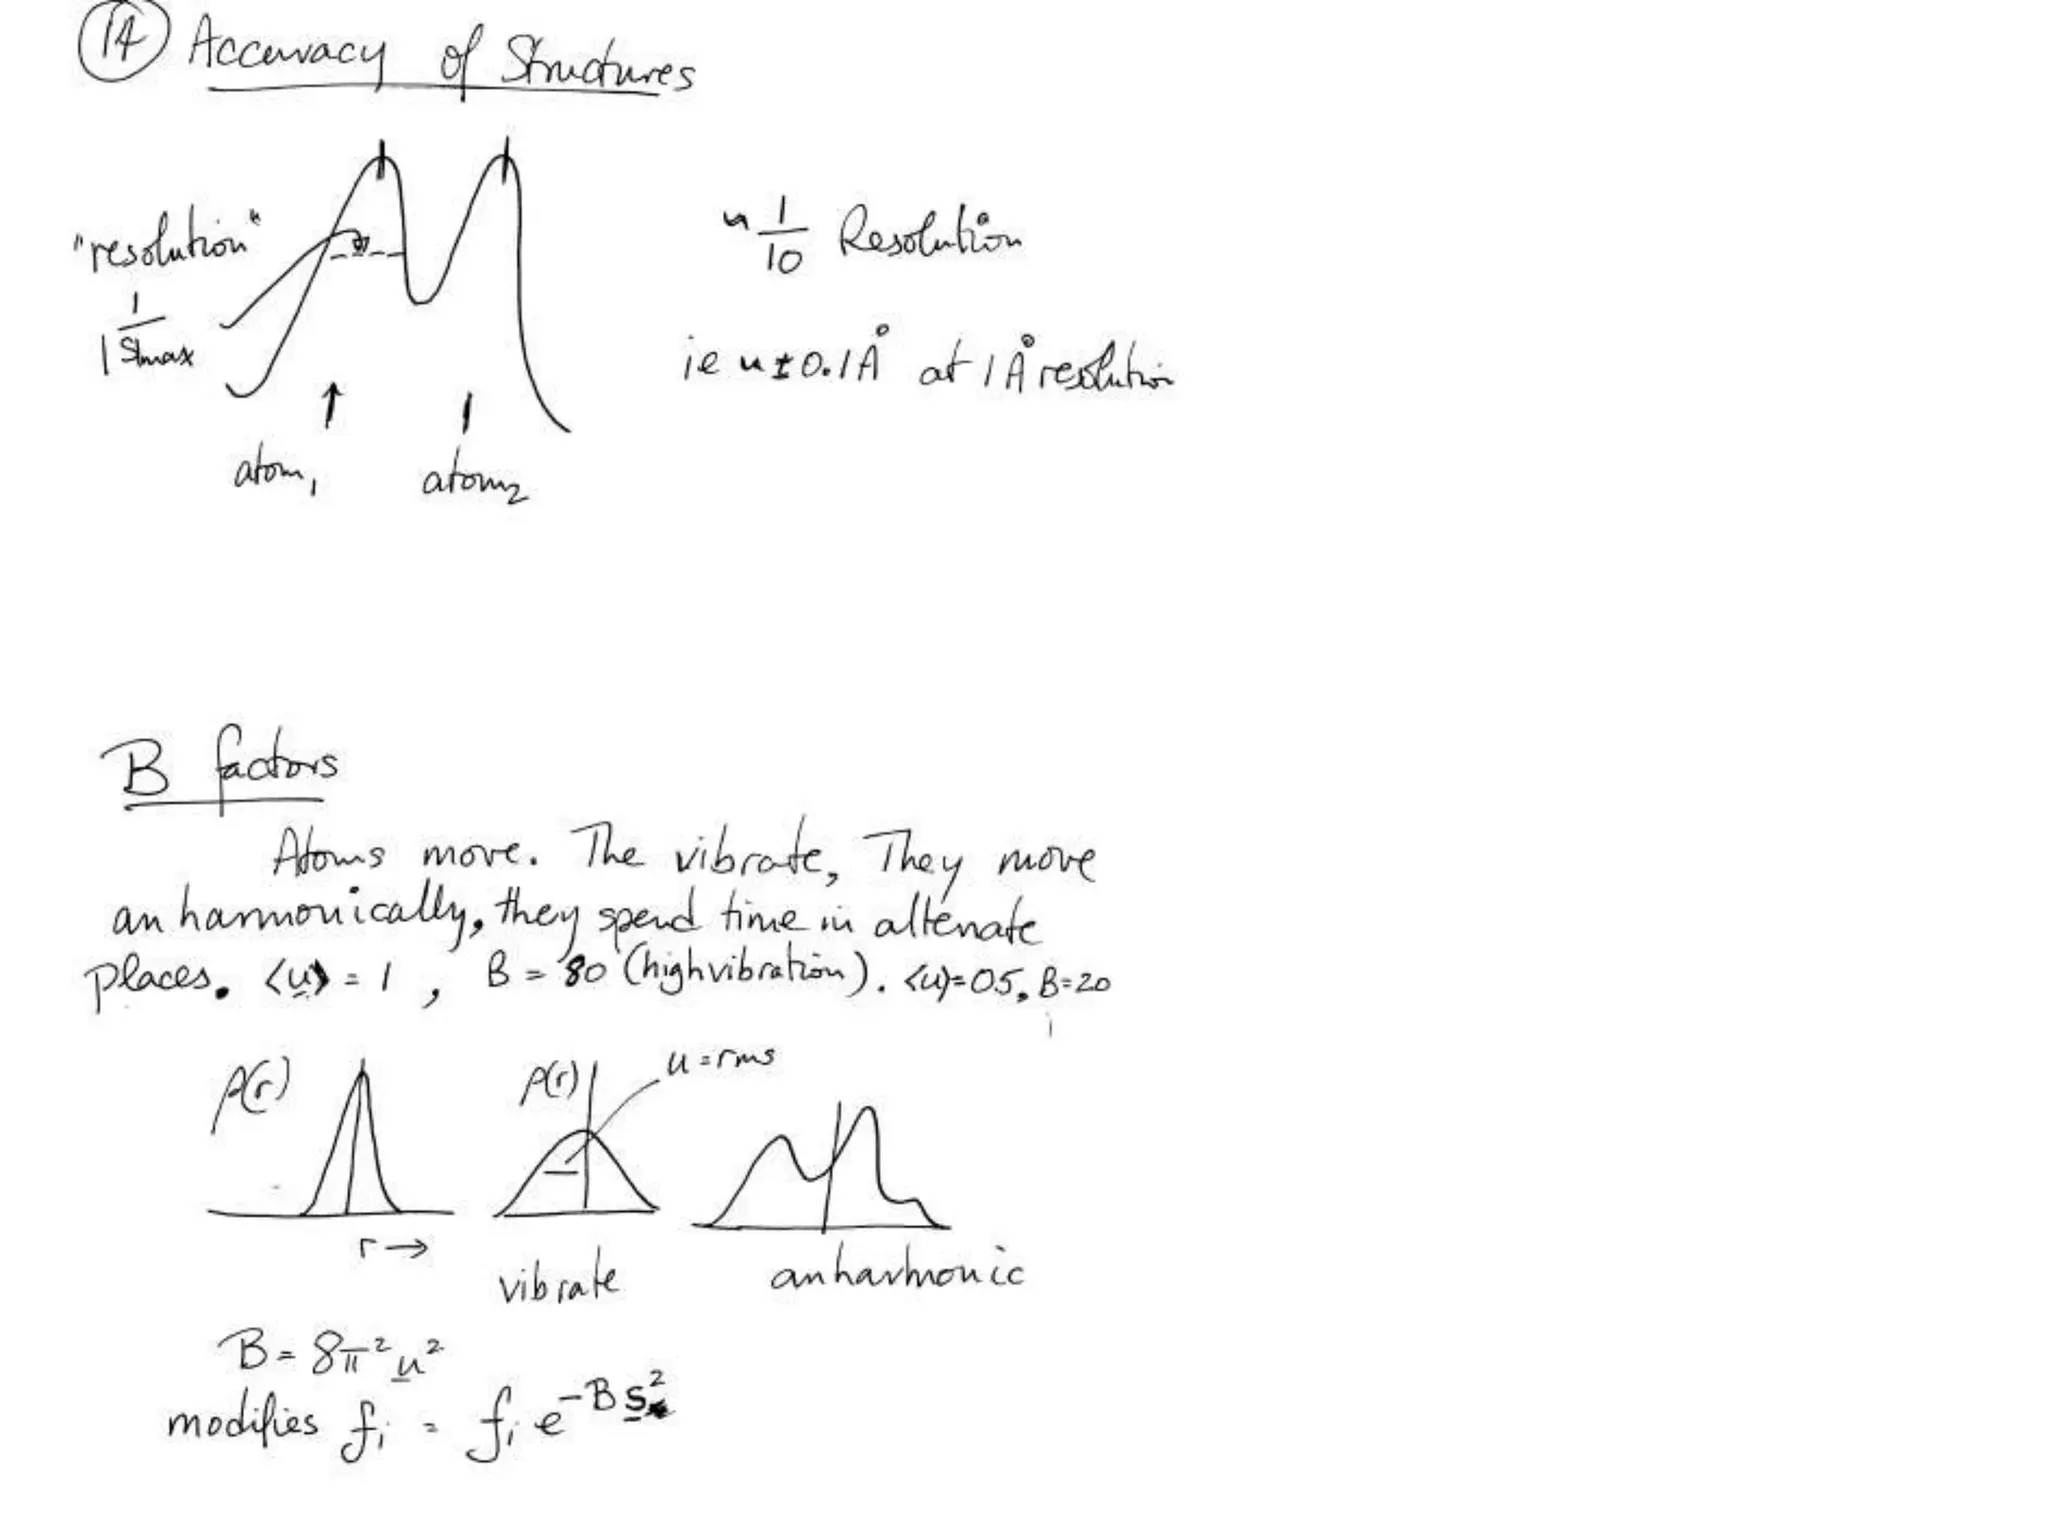 14 Accuracy of Structures
"resolution"
1/|S|max
~ 1/10 Resolution
ie ~±0.1Å at 1Å resolution
atom1 atom2
B factors
Atoms move. The vibrate, They move
anharmonically, they spend time in altenate
places. <u> = 1, B = 80 (high vibration). <u>=0.5, B=20
ρ(r)
ρ(r)
u=rms
r→
vibrate
anharmonic
B = 8π²u²
modifies fi = fi e^-Bs²